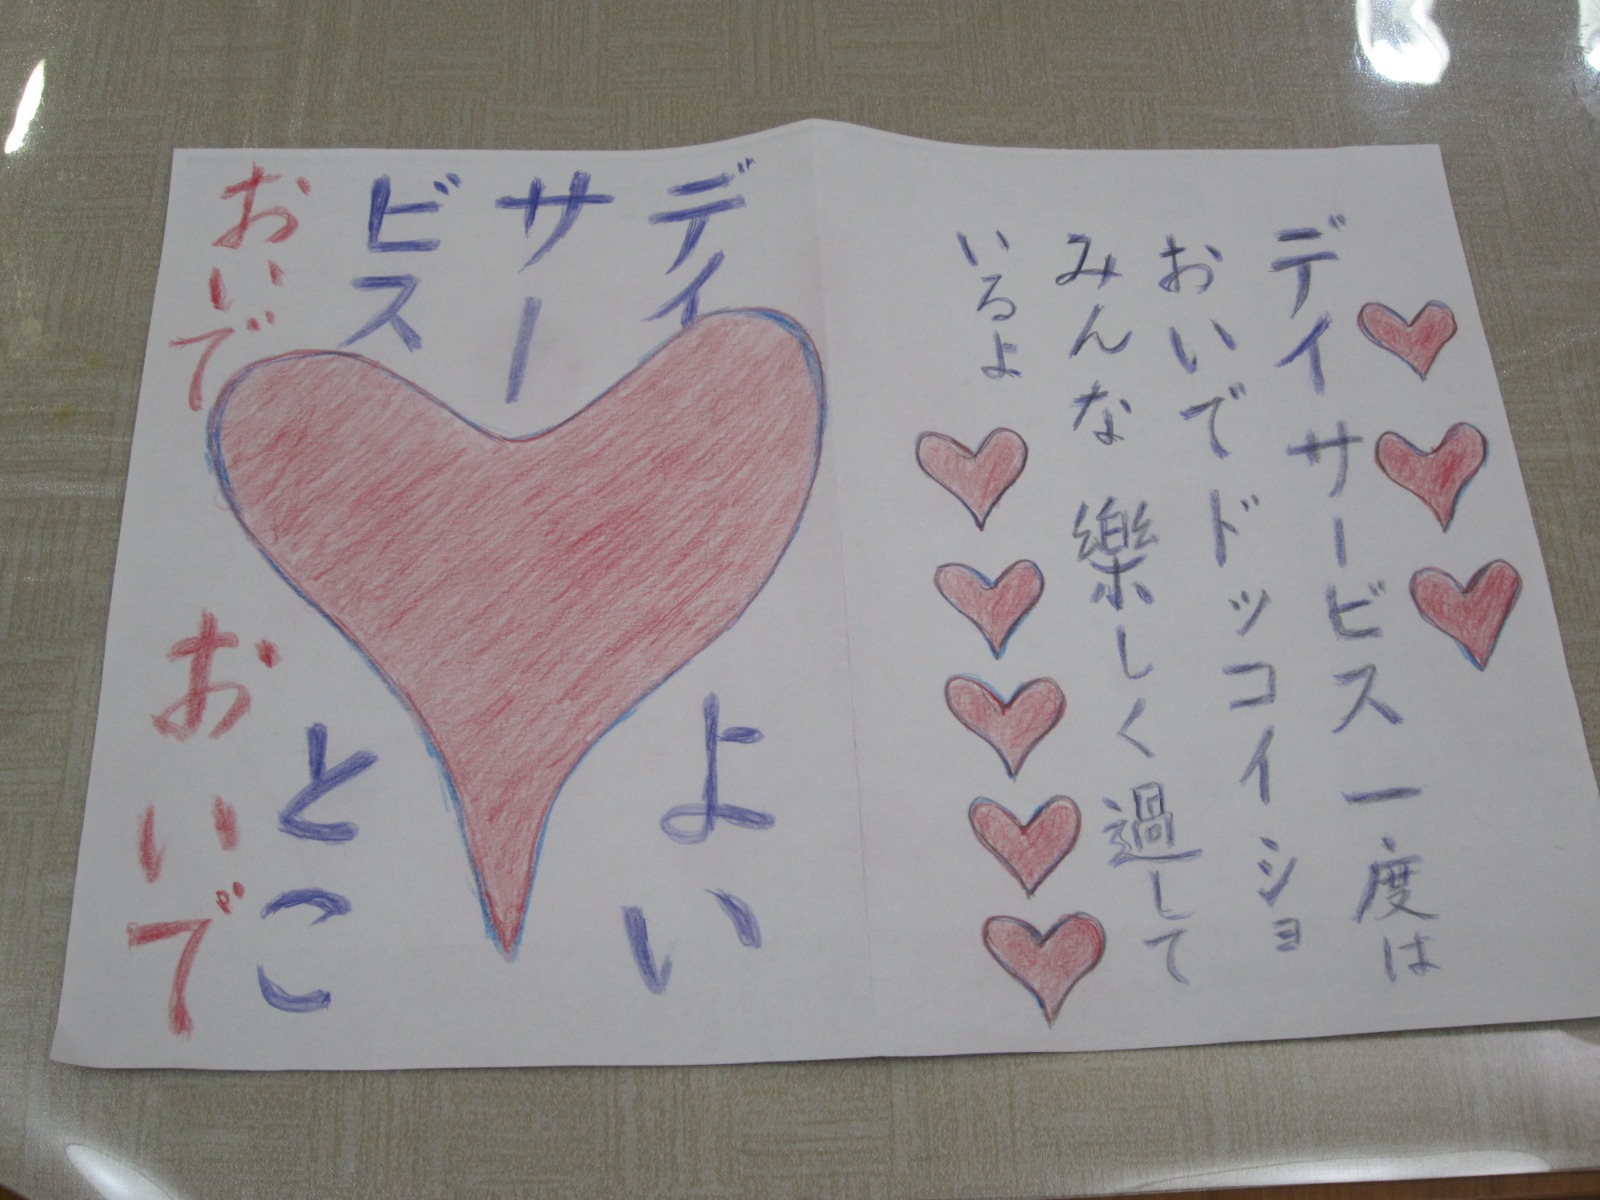 デイサービス一度は
おいでドッコイショ
みんな樂しく過して
いるよ
デイ
サー
ビス
よい
とこ
おいで
おいで